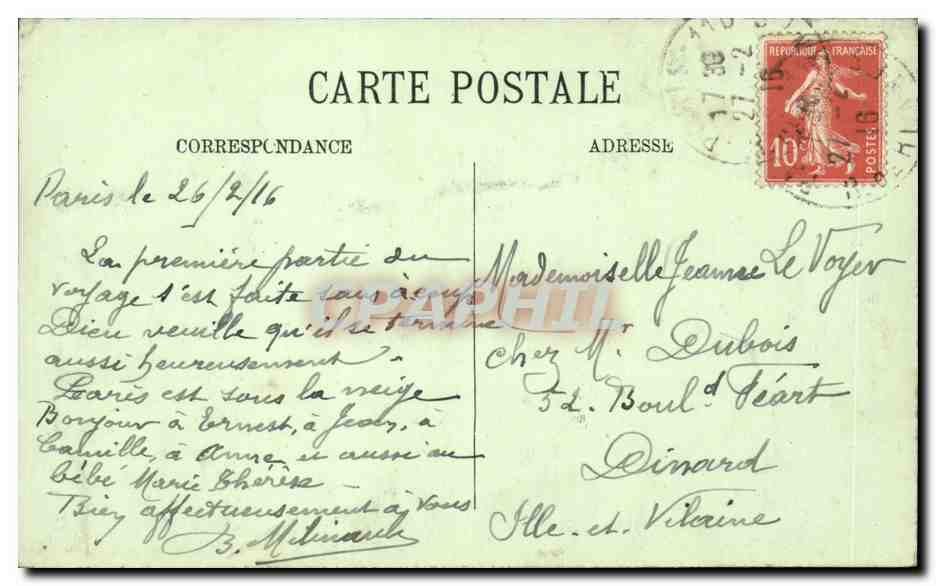 CARTE POSTALE
CORRESPONDANCE
ADRESSE
REPUBLIQUE FRANÇAISE
10
POSTES
17 30
27 - 2
16
Paris le 26/2/16
La première partie du
voyage s'est faite sans à coup
Dieu veuille qu'il se termine
aussi heureusement -
Paris est sous la neige
Bonjour à Ernest, à Jean, à
Camille, à Anne et aussi au
bébé Marie Thérèse -
Bien affectueusement à vous
B.
Mademoiselle Jeanne Le Voyer
chez Mr Dubois
52. Bould Féart
Dinard
Ille-et-Vilaine
CPAPHIL